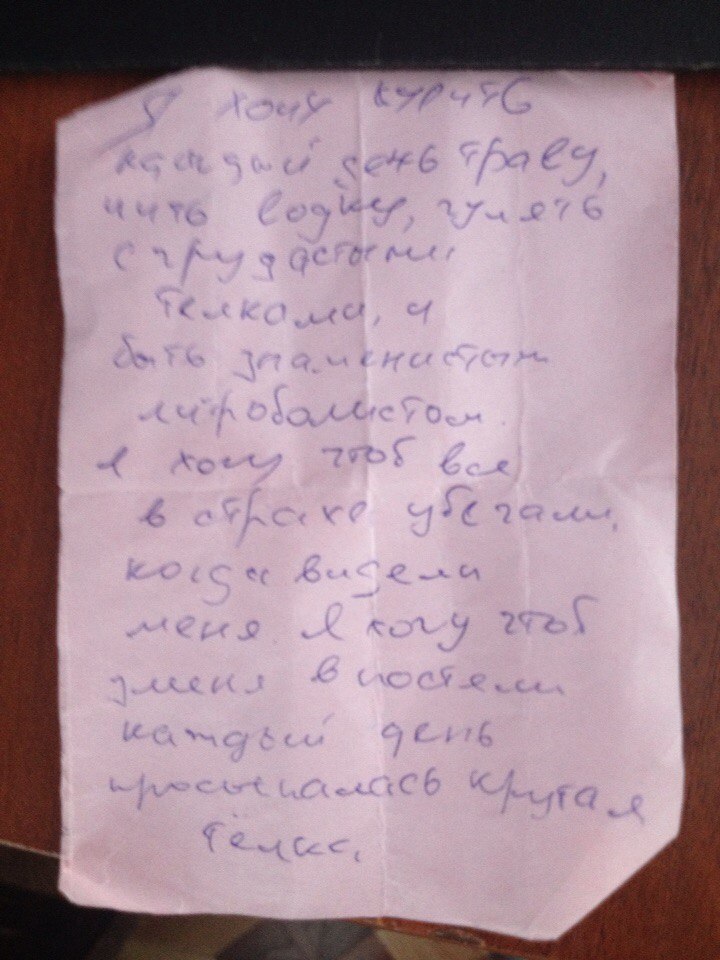 Я хочу курить
каждый день траву,
пить водку, гулять
с грудастыми
телками, и
быть знаменистым
я хочу чтоб все
в страхе убегали,
когда видели
меня. Я хочу чтоб
уменя в постели
каждый день
просыпалась крутая
тёлка.